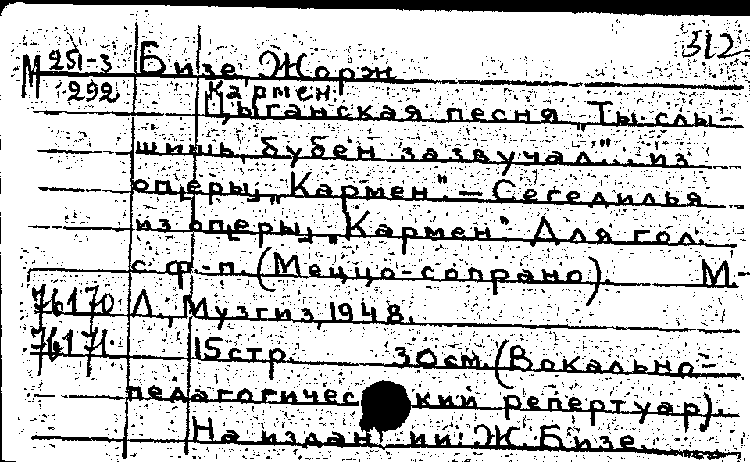 312
М 251-3 Бизе, Жорж
292 Кармен
Цыганская песня „Ты слы-
шишь, бубен зазвучал..." из
оперы „Кармен". — Сегедилья
из оперы „Кармен" Для гол.
с ф-п. (Меццо-сопрано). М.-
76170 Л., Музгиз, 1948.
76171 15 стр. 30 см. (Вокально-
педагогический репертуар).
На издании: Ж. Бизе.